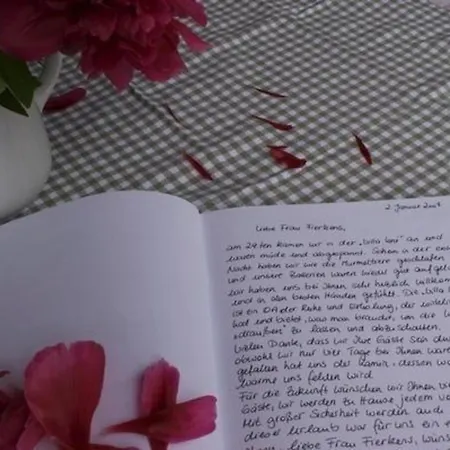 2. Januar 2007
Liebe Frau Fierkens,
am 29ten kamen wir in der „Villa an und
waren müde und abgespannt. Schon in der
Nacht haben wir wie die Murmeltiere geschlafen
und unsere Batterien waren wieder gut
wir haben uns bei Ihnen sehr herzlich
und in den besten Händen gefühlt. Die
ist ein Ort der Ruhe und Erholung, der
hat und bietet, was man braucht, um die
„draußen" zu lassen und abzuschalten.
Vielen Dank, dass wir Ihre Gäste sein
obwohl wir nur vier Tage bei Ihnen
gefallen hat uns der Kamin, dessen
Wärme uns fehlen wird.
Für die Zukunft wünschen wir Ihnen
Gäste, wir werden zu Hause jedem
Mit großer Sicherheit werden auch
dieser Urlaub war für uns ein
liebe Frau Fierkens,